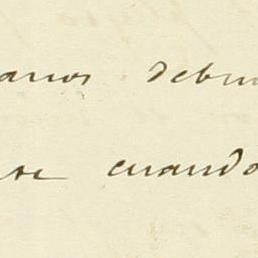 arios debi
se cuando